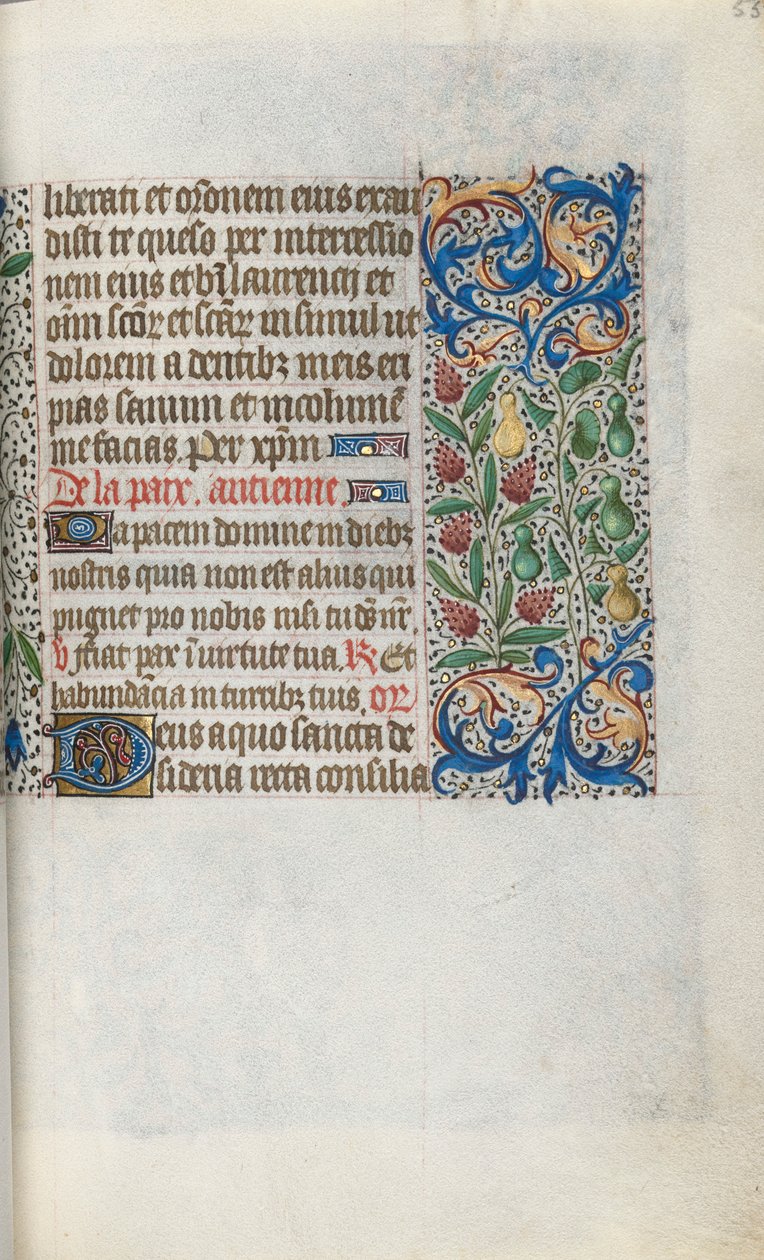 55
liberati et orōnem eius exau
disti te queso per intercessio
nem eius et bī laurencij et
oīm sctōꝝ et sctāꝝ insimul ut
dolorem a dentibꝫ meis eri
pias sanum et incolumē
me facias. Per xpm̄
De la paix. antienne.
Da pacem domine in diebꝫ
nostris quia non est alius qui
pugnet pro nobis nisi tu dš nr̄.
v̄ fiat pax ī uirtute tua. R Et
habundācia in turribꝫ tuis. or̄
Deus a quo sancta de
sideria recta consilia